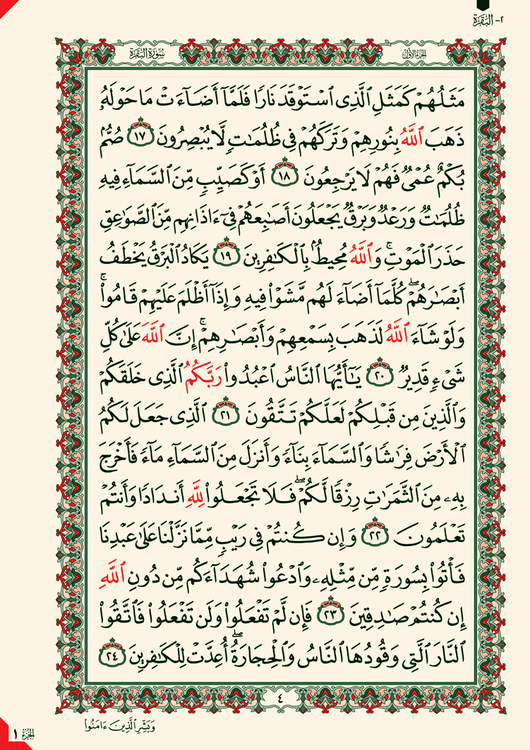 ٢- البَقَرَة
الجزء الأول
سُورَةُ البَقَرَة
مَثَلُهُمْ كَمَثَلِ ٱلَّذِى ٱسْتَوْقَدَ نَارًا فَلَمَّآ أَضَآءَتْ مَا حَوْلَهُۥ
ذَهَبَ ٱللَّهُ بِنُورِهِمْ وَتَرَكَهُمْ فِى ظُلُمَـٰتٍ لَّا يُبْصِرُونَ ١٧ صُمٌّۢ
بُكْمٌ عُمْىٌ فَهُمْ لَا يَرْجِعُونَ ١٨ أَوْ كَصَيِّبٍ مِّنَ ٱلسَّمَآءِ فِيهِ
ظُلُمَـٰتٌ وَرَعْدٌ وَبَرْقٌ يَجْعَلُونَ أَصَـٰبِعَهُمْ فِىٓ ءَاذَانِهِم مِّنَ ٱلصَّوَٰعِقِ
حَذَرَ ٱلْمَوْتِ ۚ وَٱللَّهُ مُحِيطٌۢ بِٱلْكَـٰفِرِينَ ١٩ يَكَادُ ٱلْبَرْقُ يَخْطَفُ
أَبْصَـٰرَهُمْ ۖ كُلَّمَآ أَضَآءَ لَهُم مَّشَوْا۟ فِيهِ وَإِذَآ أَظْلَمَ عَلَيْهِمْ قَامُوا۟ ۚ
وَلَوْ شَآءَ ٱللَّهُ لَذَهَبَ بِسَمْعِهِمْ وَأَبْصَـٰرِهِمْ ۚ إِنَّ ٱللَّهَ عَلَىٰ كُلِّ
شَىْءٍ قَدِيرٌ ٢٠ يَـٰٓأَيُّهَا ٱلنَّاسُ ٱعْبُدُوا۟ رَبَّكُمُ ٱلَّذِى خَلَقَكُمْ
وَٱلَّذِينَ مِن قَبْلِكُمْ لَعَلَّكُمْ تَتَّقُونَ ٢١ ٱلَّذِى جَعَلَ لَكُمُ
ٱلْأَرْضَ فِرَٰشًا وَٱلسَّمَآءَ بِنَآءً وَأَنزَلَ مِنَ ٱلسَّمَآءِ مَآءً فَأَخْرَجَ
بِهِۦ مِنَ ٱلثَّمَرَٰتِ رِزْقًا لَّكُمْ ۖ فَلَا تَجْعَلُوا۟ لِلَّهِ أَندَادًا وَأَنتُمْ
تَعْلَمُونَ ٢٢ وَإِن كُنتُمْ فِى رَيْبٍ مِّمَّا نَزَّلْنَا عَلَىٰ عَبْدِنَا
فَأْتُوا۟ بِسُورَةٍ مِّن مِّثْلِهِۦ وَٱدْعُوا۟ شُهَدَآءَكُم مِّن دُونِ ٱللَّهِ
إِن كُنتُمْ صَـٰدِقِينَ ٢٣ فَإِن لَّمْ تَفْعَلُوا۟ وَلَن تَفْعَلُوا۟ فَٱتَّقُوا۟
ٱلنَّارَ ٱلَّتِى وَقُودُهَا ٱلنَّاسُ وَٱلْحِجَارَةُ ۖ أُعِدَّتْ لِلْكَـٰفِرِينَ ٢٤
٤
وَبَشِّرِ ٱلَّذِينَ ءَامَنُوا۟
الجزء ١